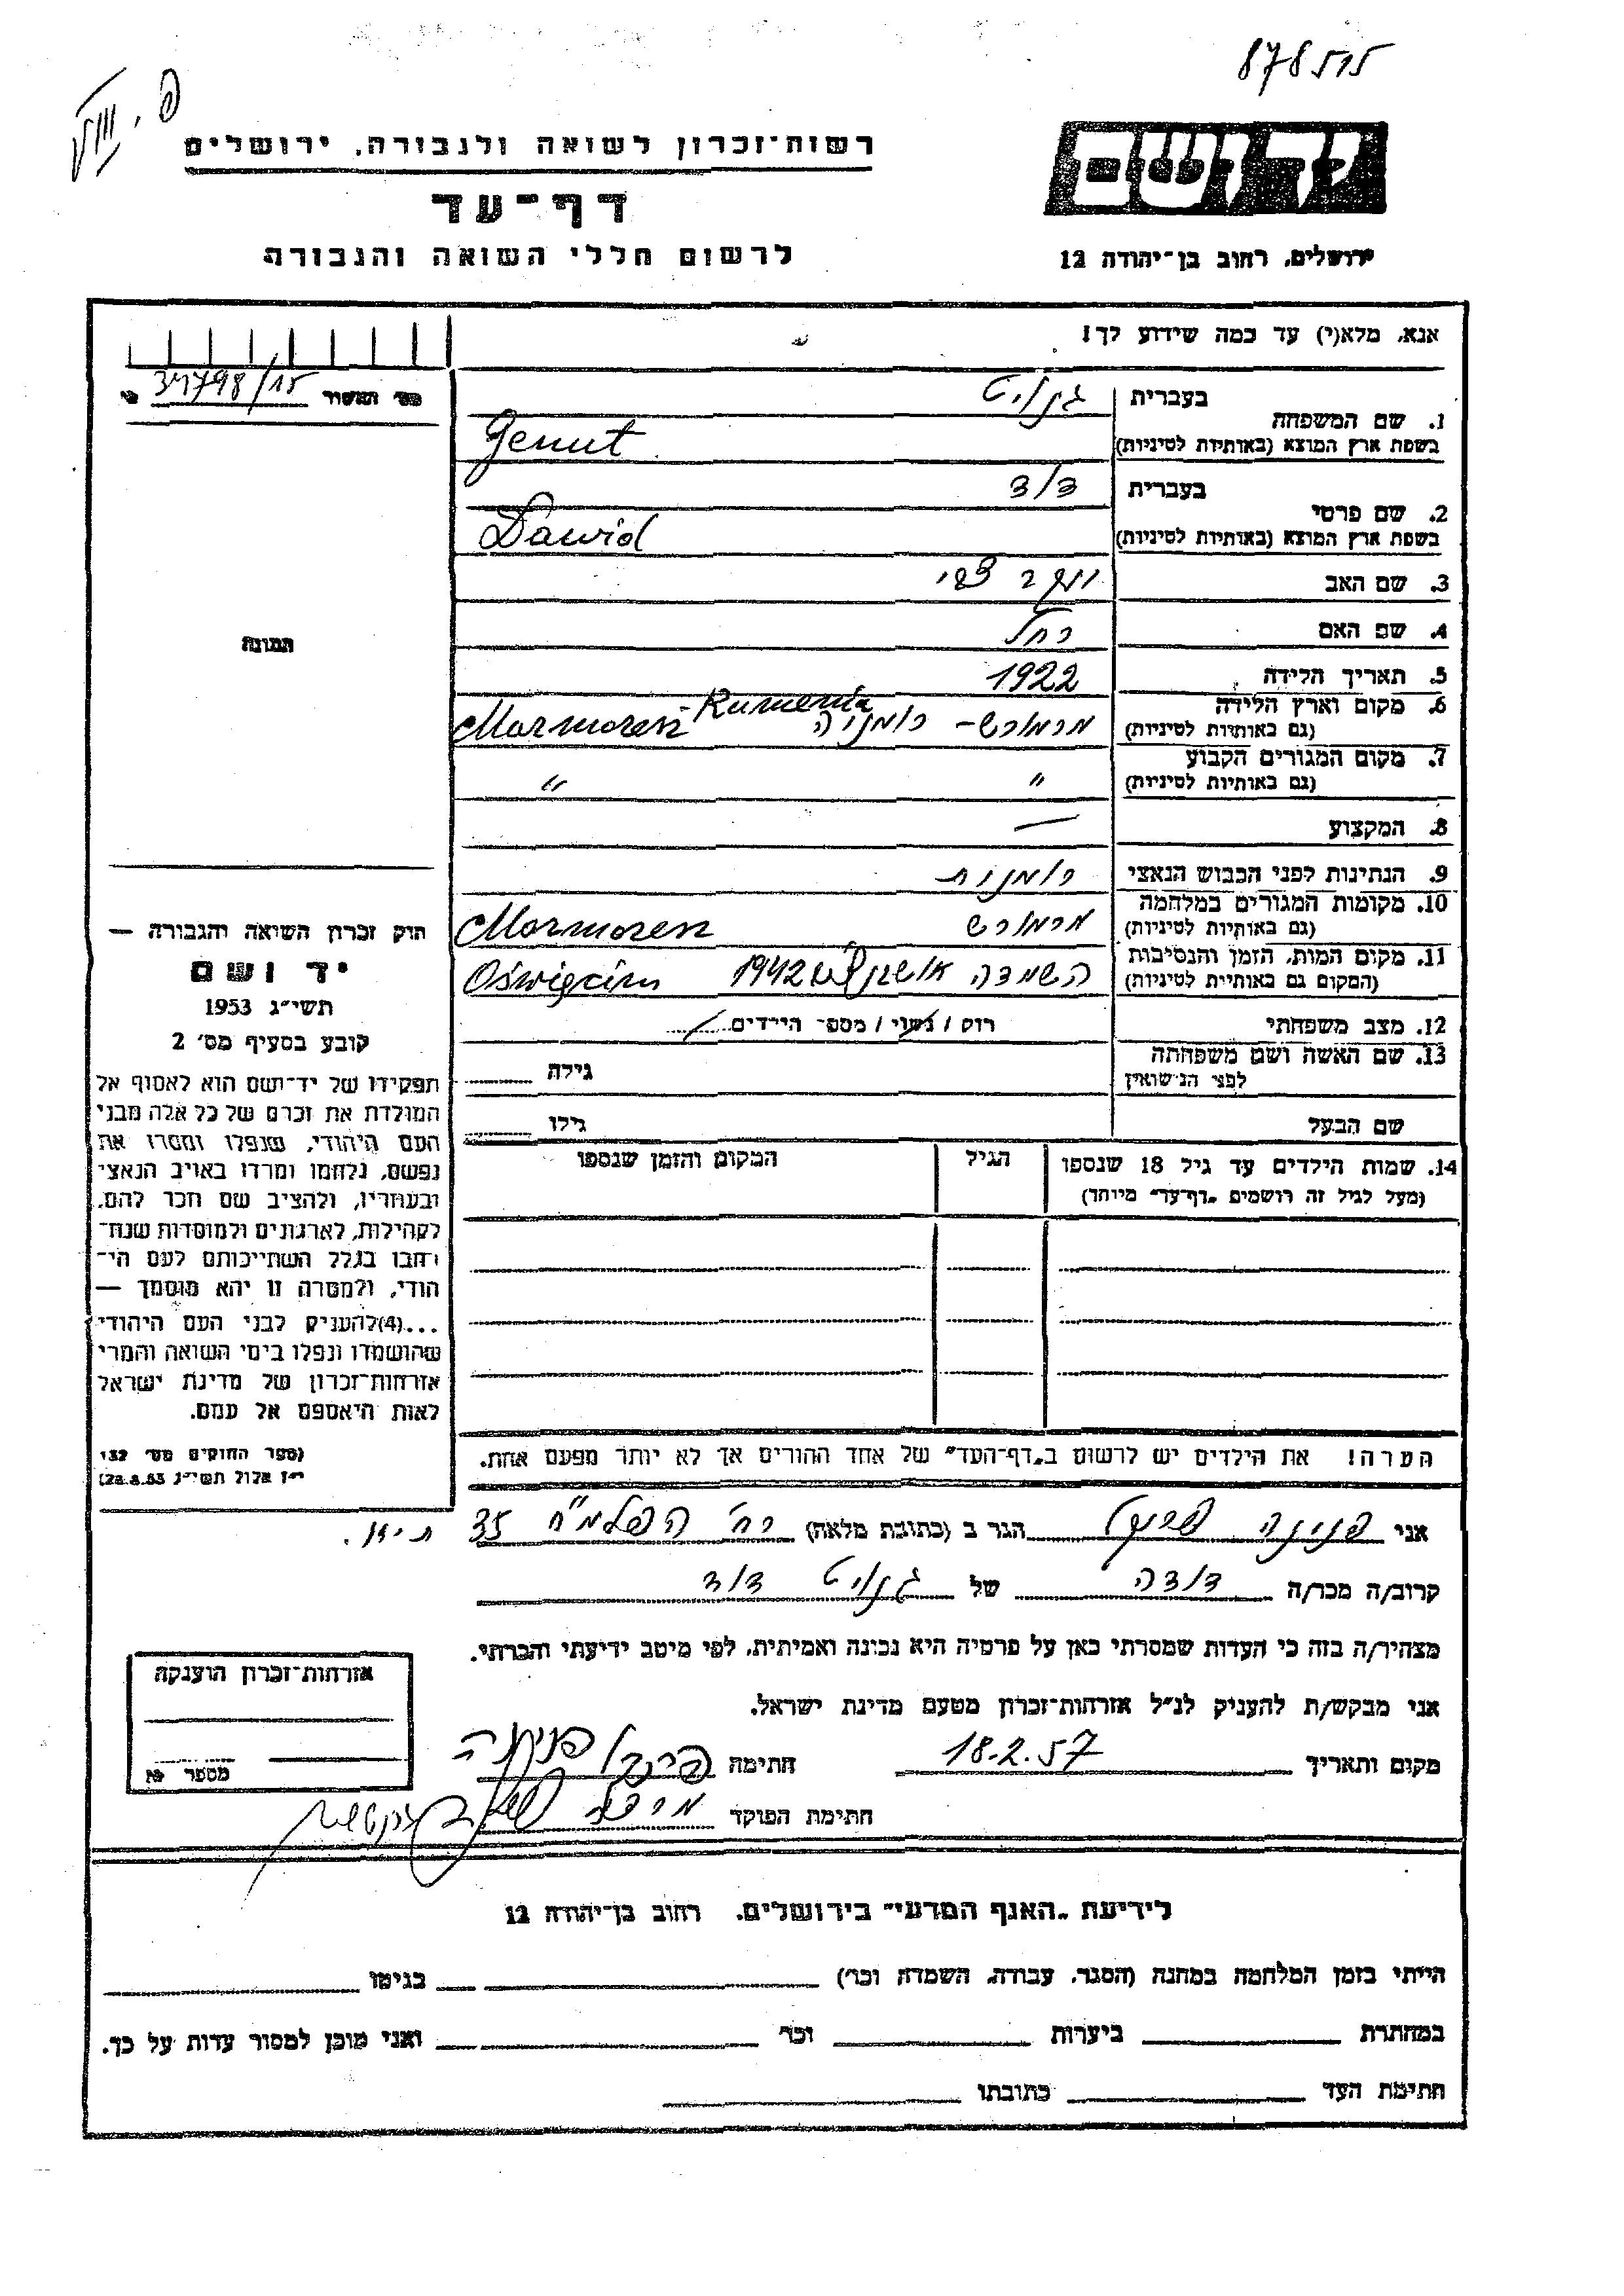 878515
רשות־זכרון לשואה ולגבורה, ירושלים
דף־עד
לרשום חללי השואה והגבורה
יד ושם
ירושלים, רחוב בן־יהודה 12
אנא, מלא(י) עד כמה שידוע לך!
1. שם המשפחה
בעברית
גנויט
בשפת ארץ המוצא (באותיות לטיניות)
Genut
2. שם פרטי
בעברית
דוד
בשפת ארץ המוצא (באותיות לטיניות)
Dawid
3. שם האב
צבי
4. שם האם
רחל
5. תאריך הלידה
1922
6. מקום וארץ הלידה
(גם באותיות לטיניות)
מרמורש - רומניה Marmoresz - Rumenia
7. מקום המגורים הקבוע
(גם באותיות לטיניות)
" "
8. המקצוע —
9. הנתינות לפני הכבוש הנאצי
רומנית
10. מקומות המגורים במלחמה
(גם באותיות לטיניות)
מרמורש Marmoresz
11. מקום המות, הזמן והנסיבות
(המקום גם באותיות לטיניות)
השמדה 1942 Oświęcim
12. מצב משפחתי
רוק / נשוי / מספר הילדים
13. שם האשה ושם משפחתה
לפני הנישואין
גילה
שם הבעל
גילו
14. שמות הילדים עד גיל 18 שנספו
(מעל לגיל זה רושמים „דף־עד" מיוחד)
הגיל
המקום והזמן שנספו
הערה! את הילדים יש לרשום ב„דף־העד" של אחד ההורים אך לא יותר מפעם אחת.
34798/15
התמונה
חוק זכרון השואה והגבורה —
יד ושם
תשי״ג 1953
קובע בסעיף מס׳ 2
תפקידו של יד־ושם הוא לאסוף אל
המולדת את זכרם של כל אלה מבני
העם היהודי, שנפלו ומסרו את
נפשם, נלחמו ומרדו באויב הנאצי
ובעוזריו, ולהציב שם וזכר להם,
לקהילות, לארגונים ולמוסדות שנח־
רבו בגלל השתייכותם לעם הי־
הודי, ולמטרה זו יהא מוסמך —
...(4)להעניק לבני העם היהודי
שהושמדו ונפלו בימי השואה והמרי
אזרחות־זכרון של מדינת ישראל
לאות היאספם אל עמם.
(ספר החוקים מס׳ 132
י״ז אלול תשי״ג 28.8.53)
אני פנינה הגר ב (כתובת מלאה) רח׳ הפלמ״ח 35
קרוב/ה מכר/ה דודה של גנויט דוד
מצהיר/ה בזה כי העדות שמסרתי כאן על פרטיה היא נכונה ואמיתית, לפי מיטב ידיעתי והכרתי.
אני מבקש/ת להעניק לנ״ל אזרחות־זכרון מטעם מדינת ישראל.
מקום ותאריך 18.2.57 חתימה פנינה
חתימת הפוקד
אזרחות־זכרון הוענקה
מספר
לידיעת „האגף המדעי" בירושלים, רחוב בן־יהודה 12
הייתי בזמן המלחמה במחנה (הסגר, עבודה, השמדה וכו׳) בגיטו
במחתרת ביערות וכו׳ ואני מוכן למסור עדות על כך.
חתימת העד כתובתו